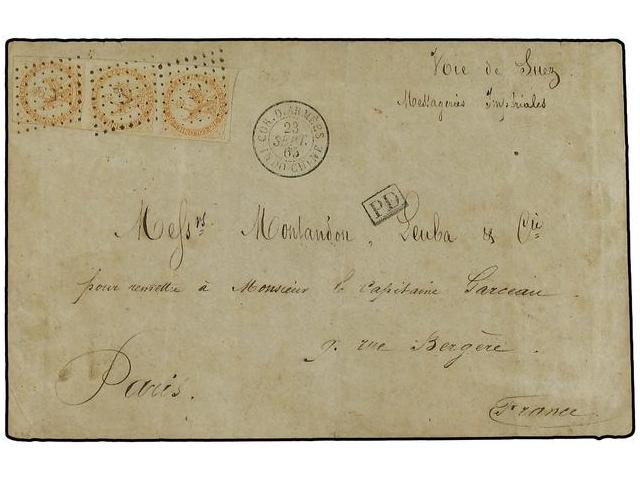 Voie de Suez
Messageries Impériales
COR. D. ARMÉES
23
SEPT.
65
INDO CHINE
PD
Messrs Montandon, Leuba & Cie
pour remettre à Monsieur le Capitaine
9. rue Bergère.
Paris.
France.